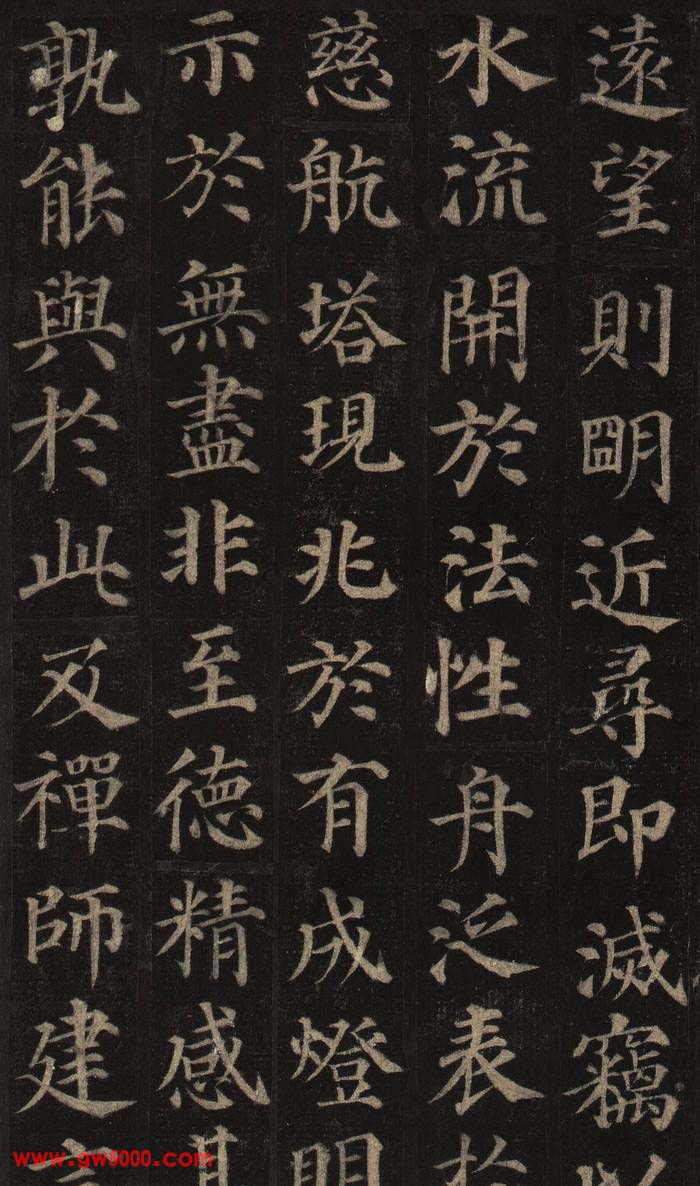 遠望則明近尋即滅竊以
水流開於法性舟泛表於
慈航塔現兆於有成燈明
示於無盡非至德精感其
孰能與於此及禪師建